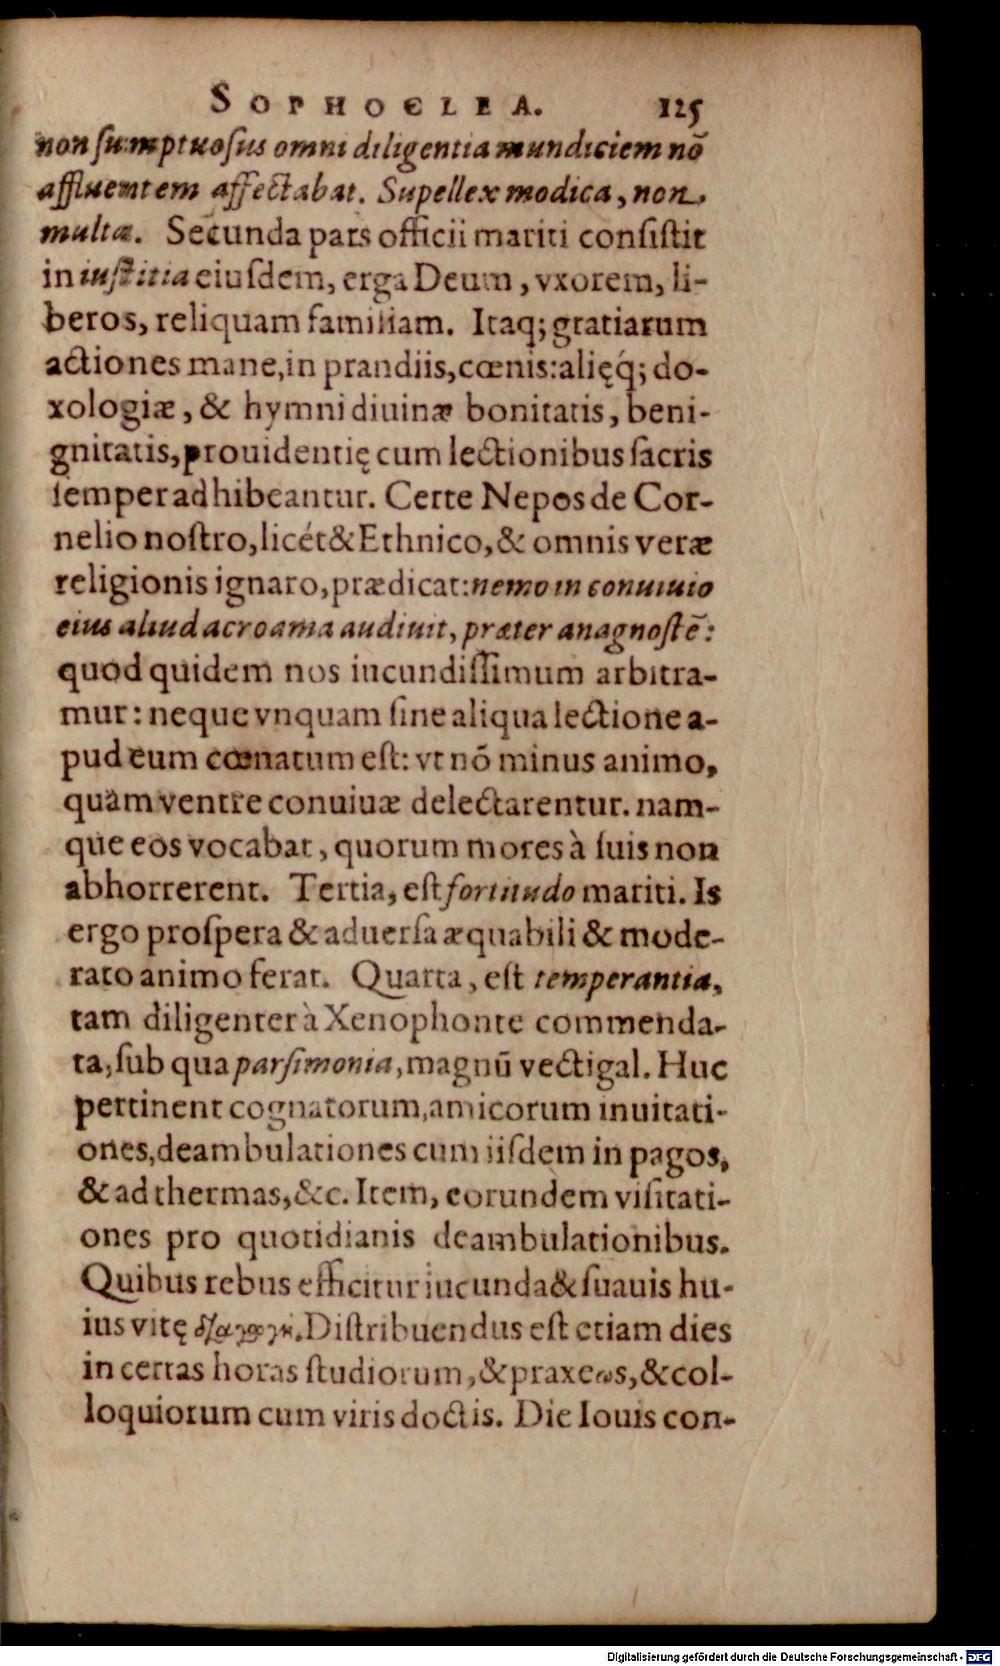 SOPHOCLEA. 125
non ſumptuoſus omni diligentia mundiciem nõ
affluentem affectabat. Supellex modica, non
multa. Secunda pars officii mariti conſiſtit
in iuſtitia eiuſdem, erga Deum, vxorem, li-
beros, reliquam familiam. Itaq; gratiarum
actiones mane, in prandiis, cœnis: alięq́; do-
xologiæ, & hymni diuinæ bonitatis, beni-
gnitatis, prouidentię cum lectionibus ſacris
ſemper adhibeantur. Certe Nepos de Cor-
nelio noſtro, licét & Ethnico, & omnis veræ
religionis ignaro, prædicat: nemo in conuiuio
eius aliud acroama audiuit, præter anagnoſtē:
quod quidem nos iucundiſſimum arbitra-
mur: neque vnquam ſine aliqua lectione a-
pud eum cœnatum eſt: vt nõ minus animo,
quàm ventre conuiuæ delectarentur. nam-
que eos vocabat, quorum mores à ſuis non
abhorrerent. Tertia, eſt fortitudo mariti. Is
ergo proſpera & aduerſa æquabili & mode-
rato animo ferat. Quarta, eſt temperantia,
tam diligenter à Xenophonte commenda-
ta, ſub qua parſimonia, magnũ vectigal. Huc
pertinent cognatorum, amicorum inuitati-
ones, deambulationes cum iiſdem in pagos,
& ad thermas, &c. Item, eorundem viſitati-
ones pro quotidianis deambulationibus.
Quibus rebus efficitur iucunda & ſuauis hu-
ius vitę διαγωγή. Diſtribuendus eſt etiam dies
in certas horas ſtudiorum, & praxeωs, & col-
loquiorum cum viris doctis. Die Iouis con-
Digitalisierung gefördert durch die Deutsche Forschungsgemeinschaft - DFG